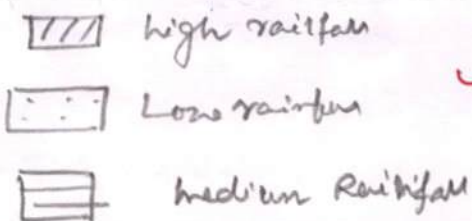 high railfall
Low rainfall
medium Rainfall